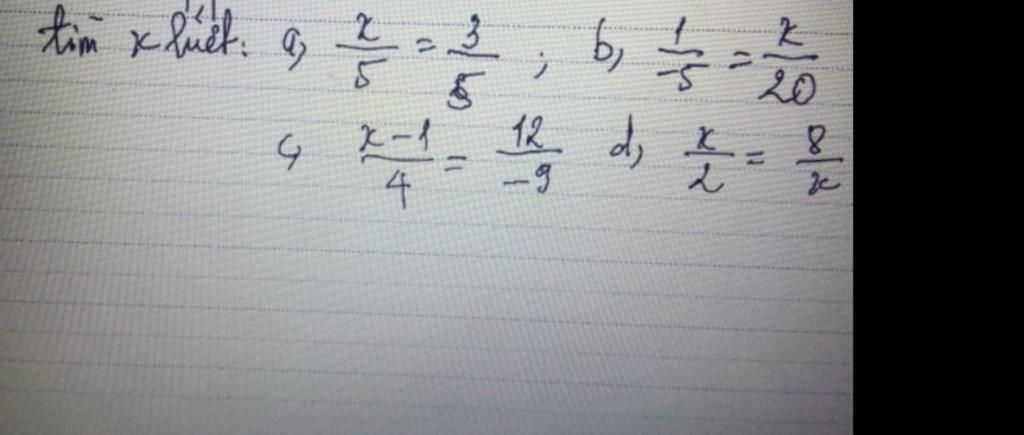 tìm x biết: a, x/5 = 3/5 ; b, 1/-5 = x/20
c, x-1/4 = 12/-9 d, x/2 = 8/x